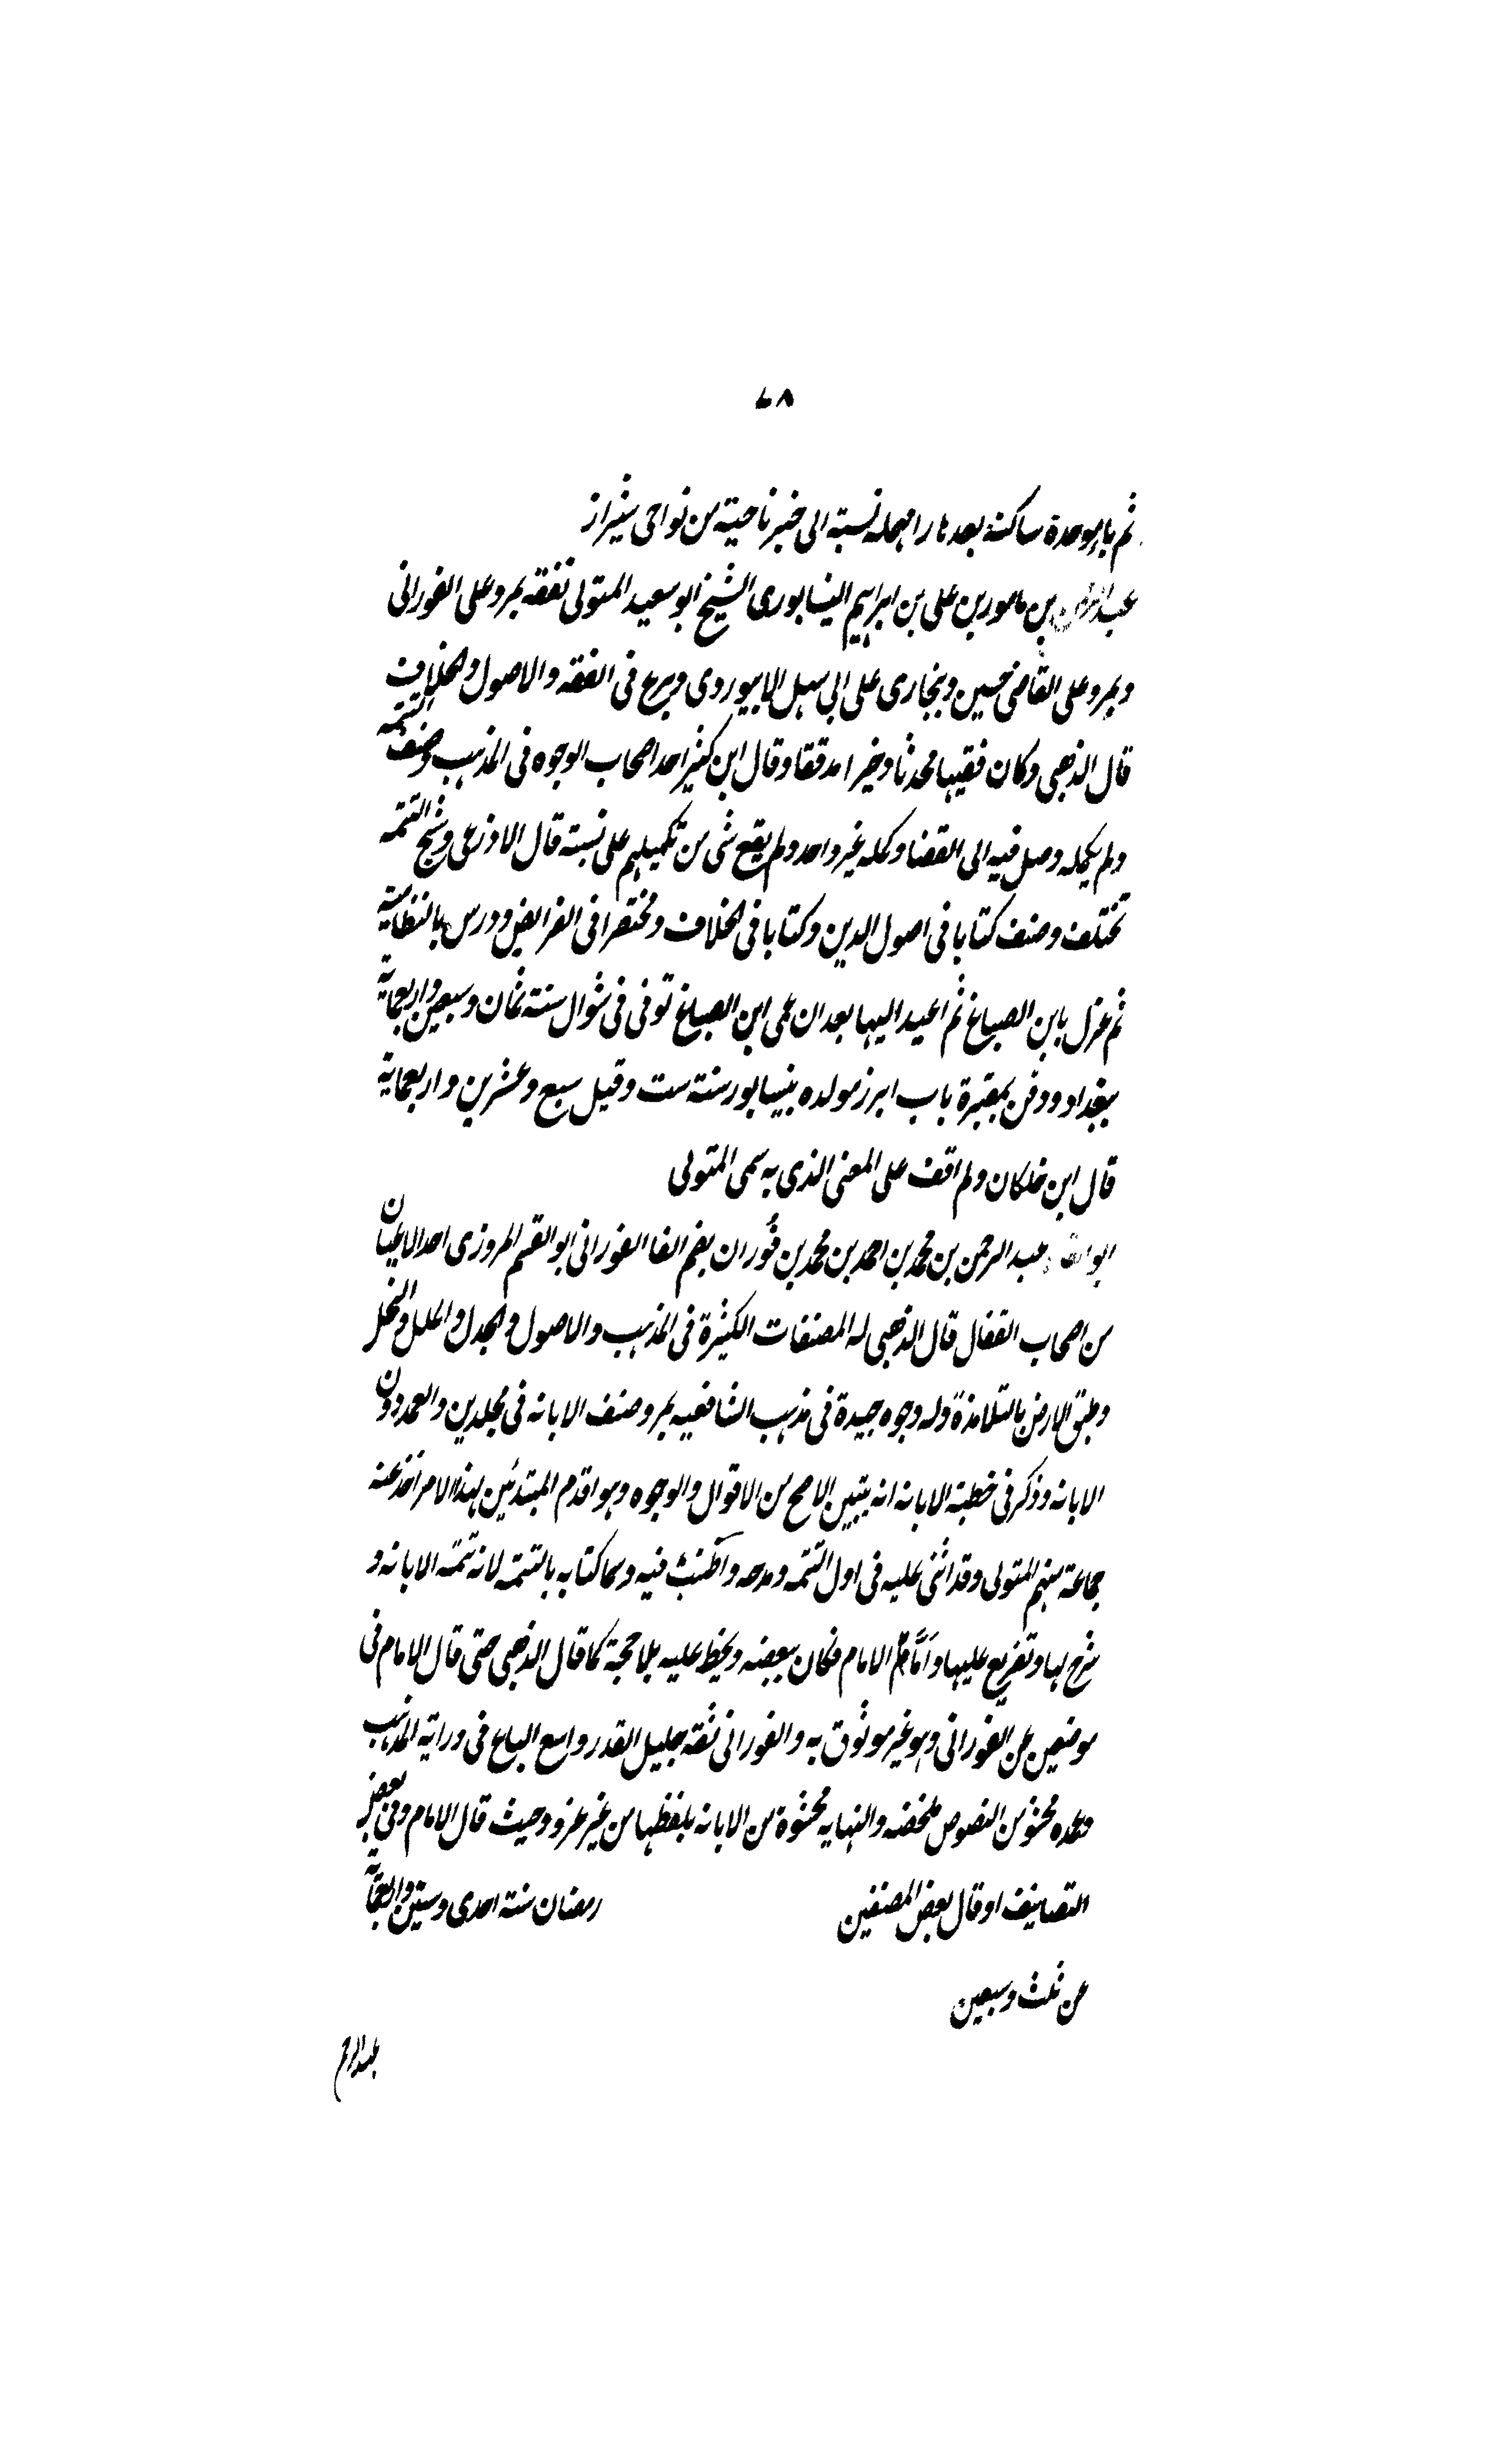 ٧٨
ثم باء موحدة ساكنة بعدها را مهملة نسبة الى خبر ناحية من نواحى شيراز
عبد الرحمن بن مامون بن على بن ابراهيم النيسابورى الشيخ ابو سعيد المتولى تفقه بمرو على الفورانى
وبمرو على القاضى حسين وبخارى على ابى سهل الابيوردى وبرع فى الفقه والاصول والخلاف
قال الذهبى وكان فقيها محدثا وخيرا مدققا وقال ابن كثير احد اصحاب الوجوه فى المذهب وصنف التتمه
ولم يكمله وصل فيه الى القضا وكمله غير واحد ولم يقع شى من تكميلهم على نسبة قال الاذرعى ونسخ التتمه
تختلف وصنف كتابا فى اصول الدين وكتابا فى الخلاف ومختصرا فى الفرايض ودرس بالنظامية
ثم عزل بابن الصباغ ثم اعيد اليها بعد ان عمى ابن الصباغ توفى فى شوال سنة ثمان وسبعين واربعماية
ببغداد ودفن بمقبرة باب ابرز مولده بنيسابور سنة ست وقيل سبع وعشرين واربعماية
قال ابن خلكان ولم اقف على المعنى الذى به سمى المتولى
عبد الرحمن بن محمد بن احمد بن محمد بن فُوران بضم الفا الفورانى ابو القسم المروزى احد الاعيان
من اصحاب القفال قال الذهبى له المصنفات الكثيرة فى المذهب والاصول والجدل والملل والنحل
وطبق الارض بالتلامذة وله وجوه جيدة فى مذهب الشافعيه بمرو صنف الابانه فى مجلدين والعمد دون
الابانه وذكر فى خطبة الابانه انه يتبين الاصح من الاقوال والوجوه وهو اقدم المبتدئين بهذا الامر اخذ عنه
جماعة منهم المتولى وقد اثنى عليه فى اول التتمه ومدحه واطنب فيه وسما كتابه بالتتمه لانه تتمة الابانه و
شرح لها وتفريع عليها وَامَّا الامام فكان يبغضه ويحط عليه بلا حجة كما قال الذهبى حتى قال الامام فى
موضعين عن الفورانى وهو غير موثوق به والفورانى ثقة جليل القدر واسع الباع فى دراية المذهب
وعمده محشو من النصوص ملخصه والنهايه محشوة من الابانه بلفظها من غير عزو وحيث قال الامام وفى بعض
التصانيف او قال بعض المصنفين رمضان سنة احدى وستين واربعماية
عن ثلث وسبعين